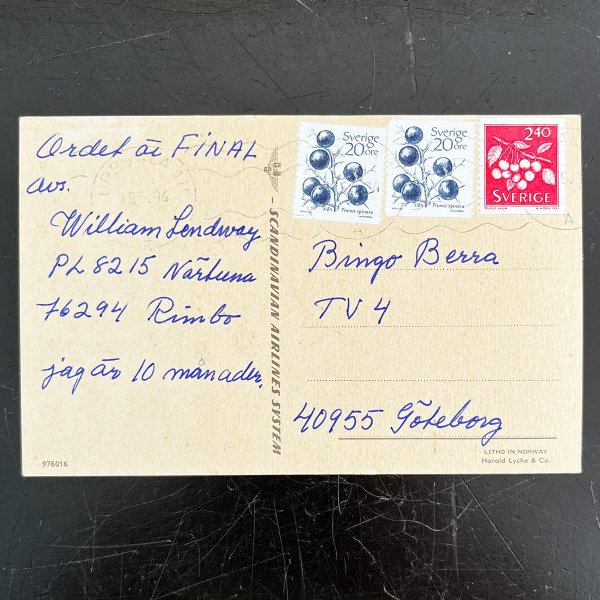 Ordet är FINAL
avs.
William Lendway
PL 8215 Närtuna
76294 Rimbo
jag är 10 månader.
976016
SCANDINAVIAN AIRLINES SYSTEM
Sverige
20 öre
Slån Prunus spinosa
Sverige
20 öre
Slån Prunus spinosa
2.40
SVERIGE
Bingo Berra
TV 4
40955 Göteborg
LITHO IN NORWAY
Harald Lyche & Co.